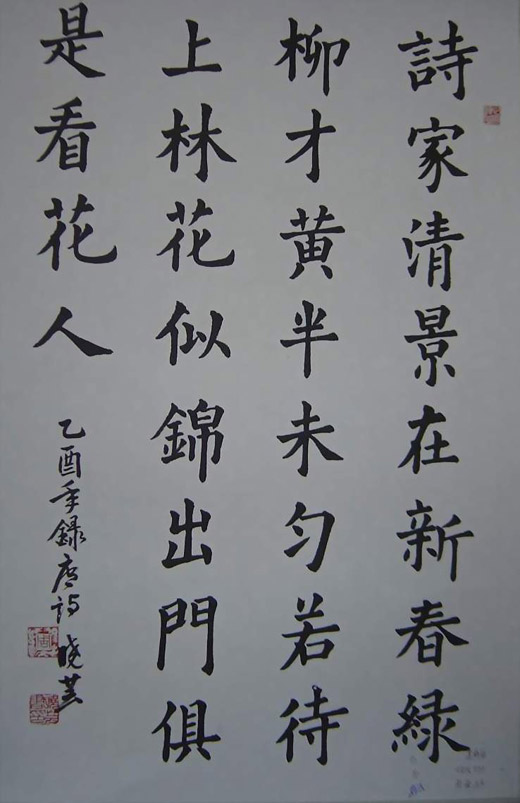 詩家清景在新春緑
柳才黄半未匀若待
上林花似錦出門俱
是看花人
乙酉年録唐詩晓芸